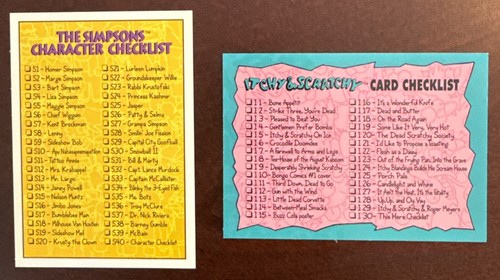 THE SIMPSONS
CHARACTER CHECKLIST
S1 - Homer Simpson
S2 - Marge Simpson
S3 - Bart Simpson
S4 - Lisa Simpson
S5 - Maggie Simpson
S6 - Chief Wiggum
S7 - Kent Brockman
S8 - Lenny
S9 - Sideshow Bob
S10 - Apu Nahasapeemapetilon
S11 - Tattoo Annie
S12 - Mrs. Krabappel
S13 - Mr. Largo
S14 - Janey Powell
S15 - Nelson Muntz
S16 - Jimbo Jones
S17 - Bumblebee Man
S18 - Milhouse Van Houten
S19 - Sideshow Mel
S20 - Krusty the Clown
S21 - Lurleen Lumpkin
S22 - Groundskeeper Willie
S23 - Rabbi Krustofski
S24 - Princess Kashmir
S25 - Jasper
S26 - Patty & Selma
S27 - Grampa Simpson
S28 - Smilin' Joe Fission
S29 - Capital City Goofball
S30 - Snowball II
S31 - Bill & Marty
S32 - Capt. Lance Murdock
S33 - Captain McCallister
S34 - Blinky the 3-Eyed Fish
S35 - Ms. Botz
S36 - Troy McClure
S37 - Dr. Nick Riviera
S38 - Barney Gumble
S39 - McBain
S40 - Character Checklist
ITCHY & SCRATCHY CARD CHECKLIST
I 1 - Bone Appetit
I 2 - Strike Three, You're Dead
I 3 - Pleased to Beat You
I 4 - Gentlemen Prefer Bombs
I 5 - Itchy & Scratchy On Ice
I 6 - Crocodile Doomdee
I 7 - A Farewell to Arms and Legs
I 8 - Ter-House of the August Kaboom
I 9 - Desperately Shrieking Scratchy
I 10 - Bongo Comics #1 cover
I 11 - Third Down, Dead to Go
I 12 - Gun with the Wind
I 13 - Little Dead Corvette
I 14 - Between-Meal Smacks
I 15 - Buzz Cola poster
I 16 - It's a Wonderful Knife
I 17 - Dead and Butter
I 18 - On the Road Again
I 19 - Some Like It Very, Very Hot
I 20 - The Dead Scratchy Society
I 21 - I'd Like to Propose a Roasting
I 22 - Flesh as a Daisy
I 23 - Out of the Frying Pan, Into the Grave
I 24 - Itchy Blandings Builds His Scream House
I 25 - Porch Pals
I 26 - Candlelight and Whine
I 27 - It Ain't the Heat, It's the Stupidity
I 28 - Up, Up, and Oy Vey
I 29 - Itchy & Scratchy & Roger Meyers
I 30 - This Here Checklist